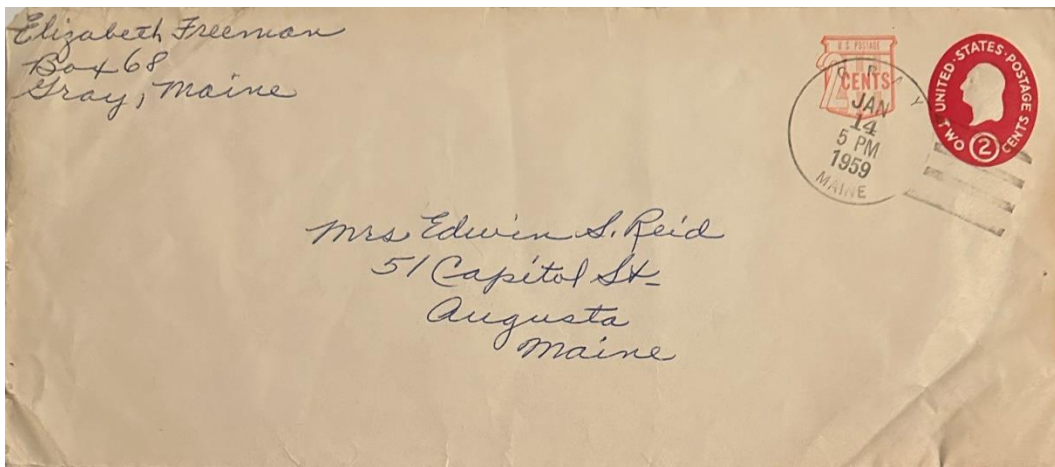 Elizabeth Freeman
Box 68
Gray, Maine
U.S. POSTAGE
2 CENTS
GRAY
JAN
14
5 PM
1959
MAINE
UNITED·STATES·POSTAGE
TWO 2 CENTS
Mrs Edwin S. Reid
51 Capitol St
Augusta
Maine